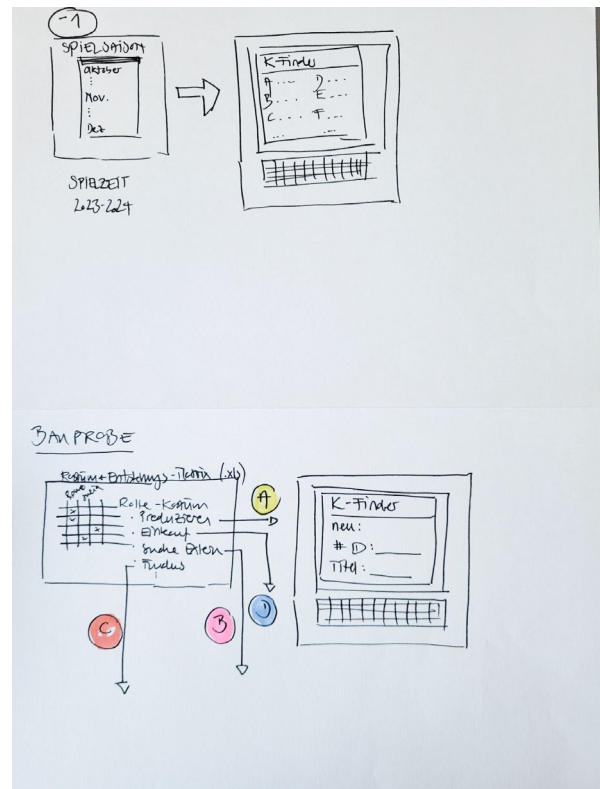 -1
SPIELSAISON
Oktober
:
Nov.
:
Dez
SPIELZEIT
2023-2024
K-Finder
A.... D...
B.... E....
C.... F....
... ....
BAUPROBE
Kostüm + Entstehungs-Matrix (.xls)
Rolle - Kostüm
· Produzieren
· Einkauf
· Suche Extern
· Fundus
A
B
C
D
K-Finder
neu:
# ID: ____
Titel: ____